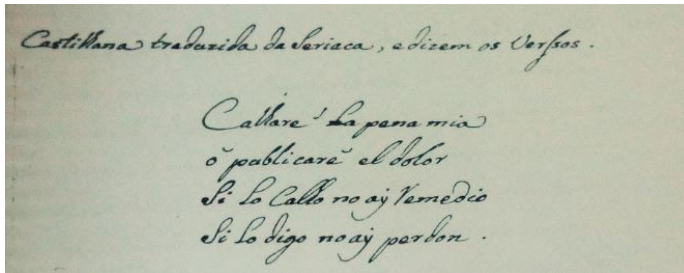 Castillana traduzida da Seriaca, e dizem os Verssos.
Callare La pena mia
ô publicare el dolor
Si lo Callo no aÿ Remedio
Si Lo digo no aÿ perdon.